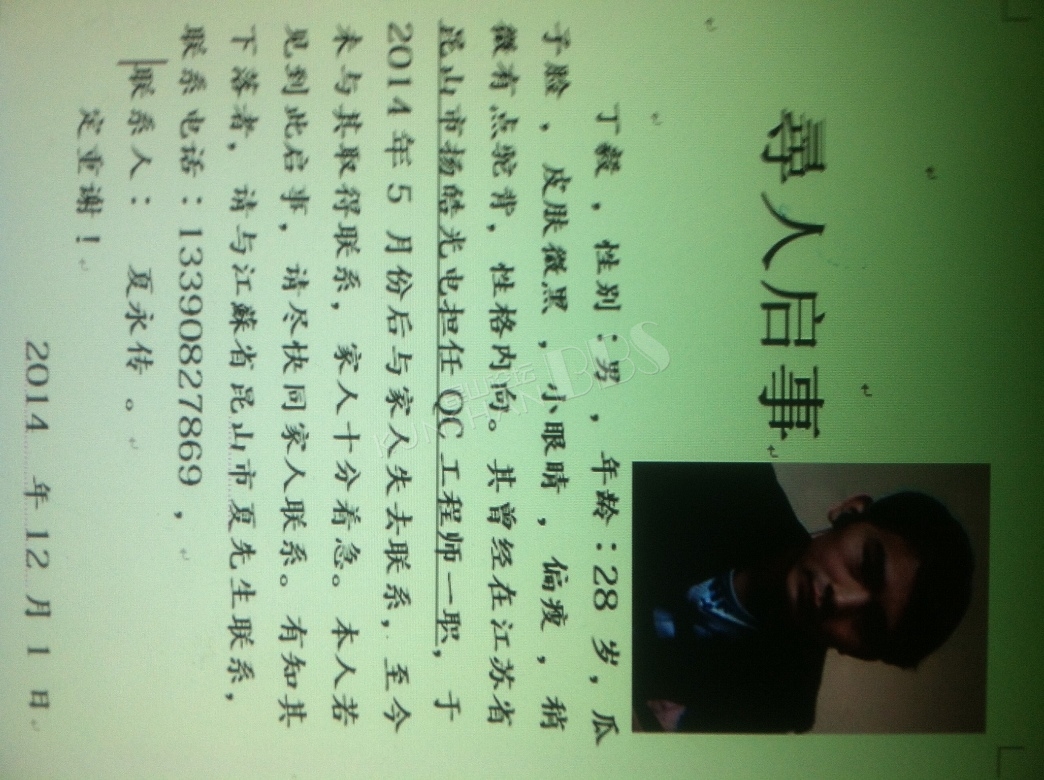 尋人启事
丁毅，性别：男，年龄：28岁，瓜
子脸，皮肤微黑，小眼睛，偏瘦，稍
微有点驼背，性格内向。其曾经在江苏省
昆山市扬皓光电担任QC工程师一职，于
2014年5月份后与家人失去联系，至今
未与其取得联系，家人十分着急。本人若
见到此启事，请尽快同家人联系。有知其
下落者，请与江蘇省昆山市夏先生联系，
联系电话：13390827869，
联系人：夏永传。
定重谢！
2014年12月1日
昆山论坛 BBS
KUNSHAN